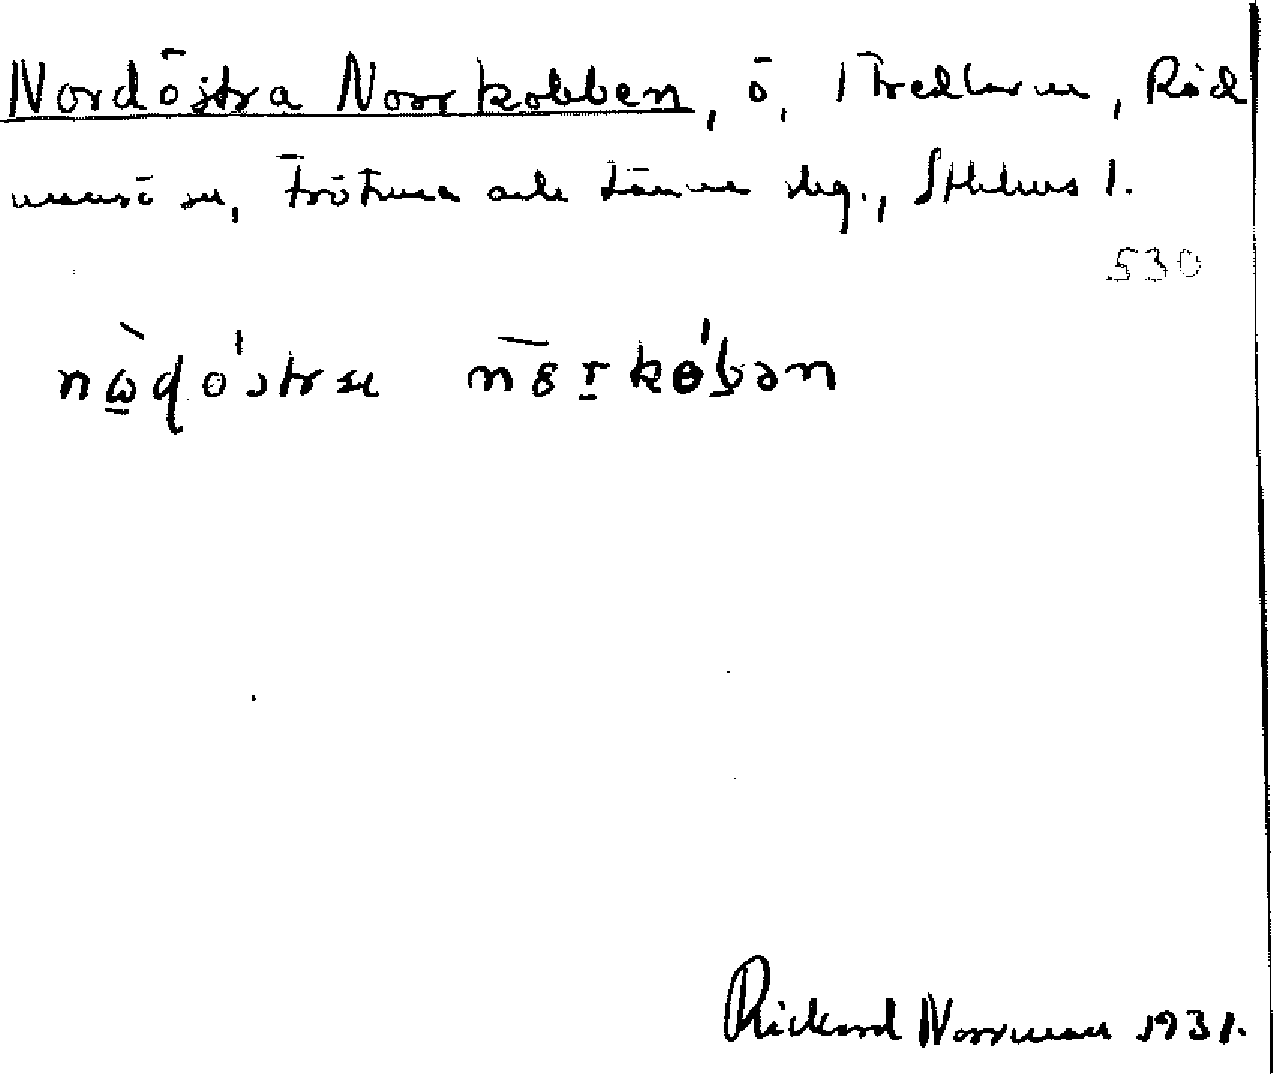 Nordöstra Norrkobben, ö, Tredlarne, Råd
mansö sn, Frötuna och Länna skg., Sthlms l.
530
nὼ̲dɵ́strɐ n̄ɞr̲kɵ́bən
Rickard Norrman 1931.